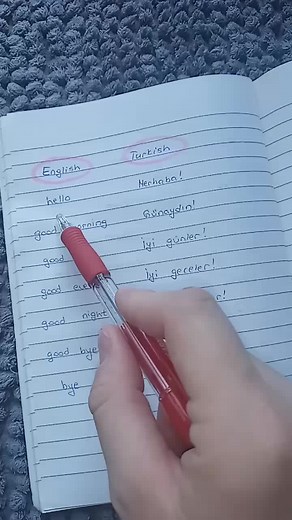 English Turkish
hello Merhaba!
good morning Günaydın!
good İyi günler!
good İyi geceler!
good night
good bye
bye